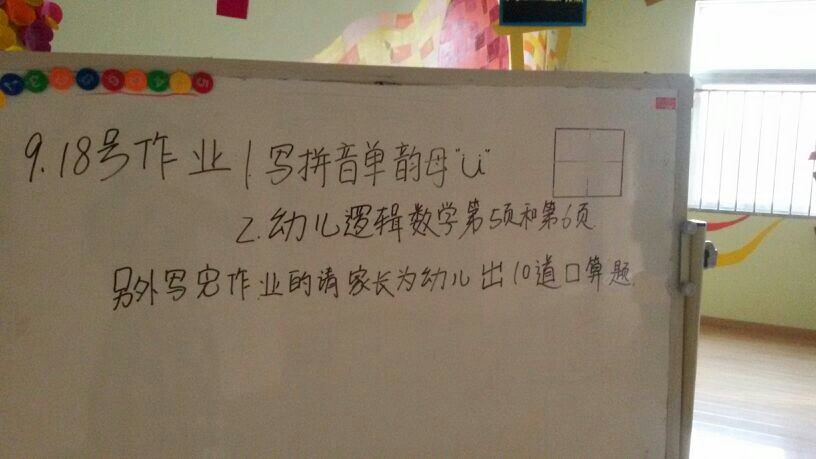 9.18号作业 1.写拼音单韵母"u"
2.幼儿逻辑数学第5页和第6页.
另外写完作业的请家长为幼儿出10道口算题.